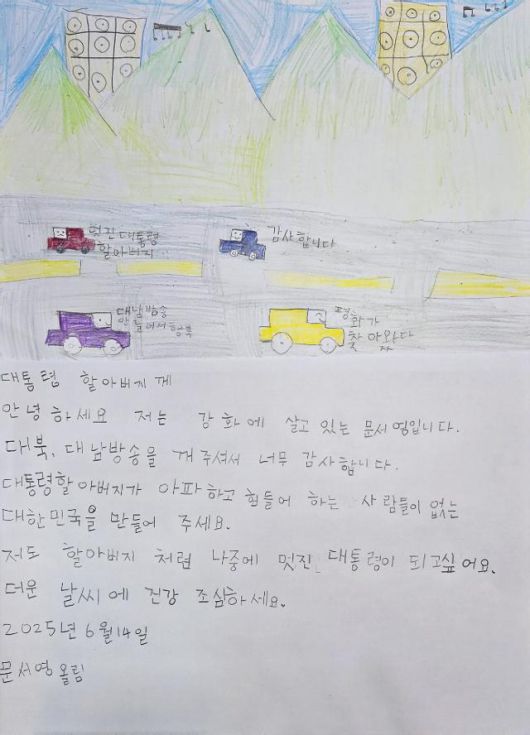 멋진 대통령
할아버지
감사합니다
대남방송
안들어서 행복
평화가
찾아왔다
대통령 할아버지께
안녕하세요 저는 강화에 살고 있는 문서영입니다.
대북, 대남방송을 꺼주셔서 너무 감사합니다.
대통령할아버지가 아파하고 힘들어 하는 사람들이 없는
대한민국을 만들어 주세요.
저도 할아버지 처럼 나중에 멋진 대통령이 되고싶어요.
더운 날씨에 건강 조심하세요.
2025년 6월14일
문서영 올림